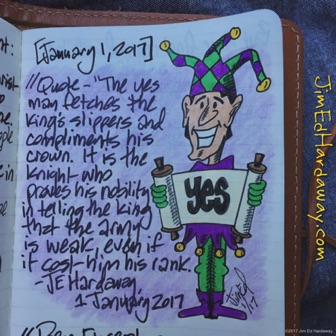 [January 1, 2017]
"Quote - "The yes
man fetches the
king's slippers and
compliments his
crown. It is the
knight who
proves his nobility
in telling the king
that the army
is weak, even if
it cost him his rank.
-JE Hardaway
1 January 2017
yes
JimEdHardaway.com
©2017 Jim Ed Hardaway